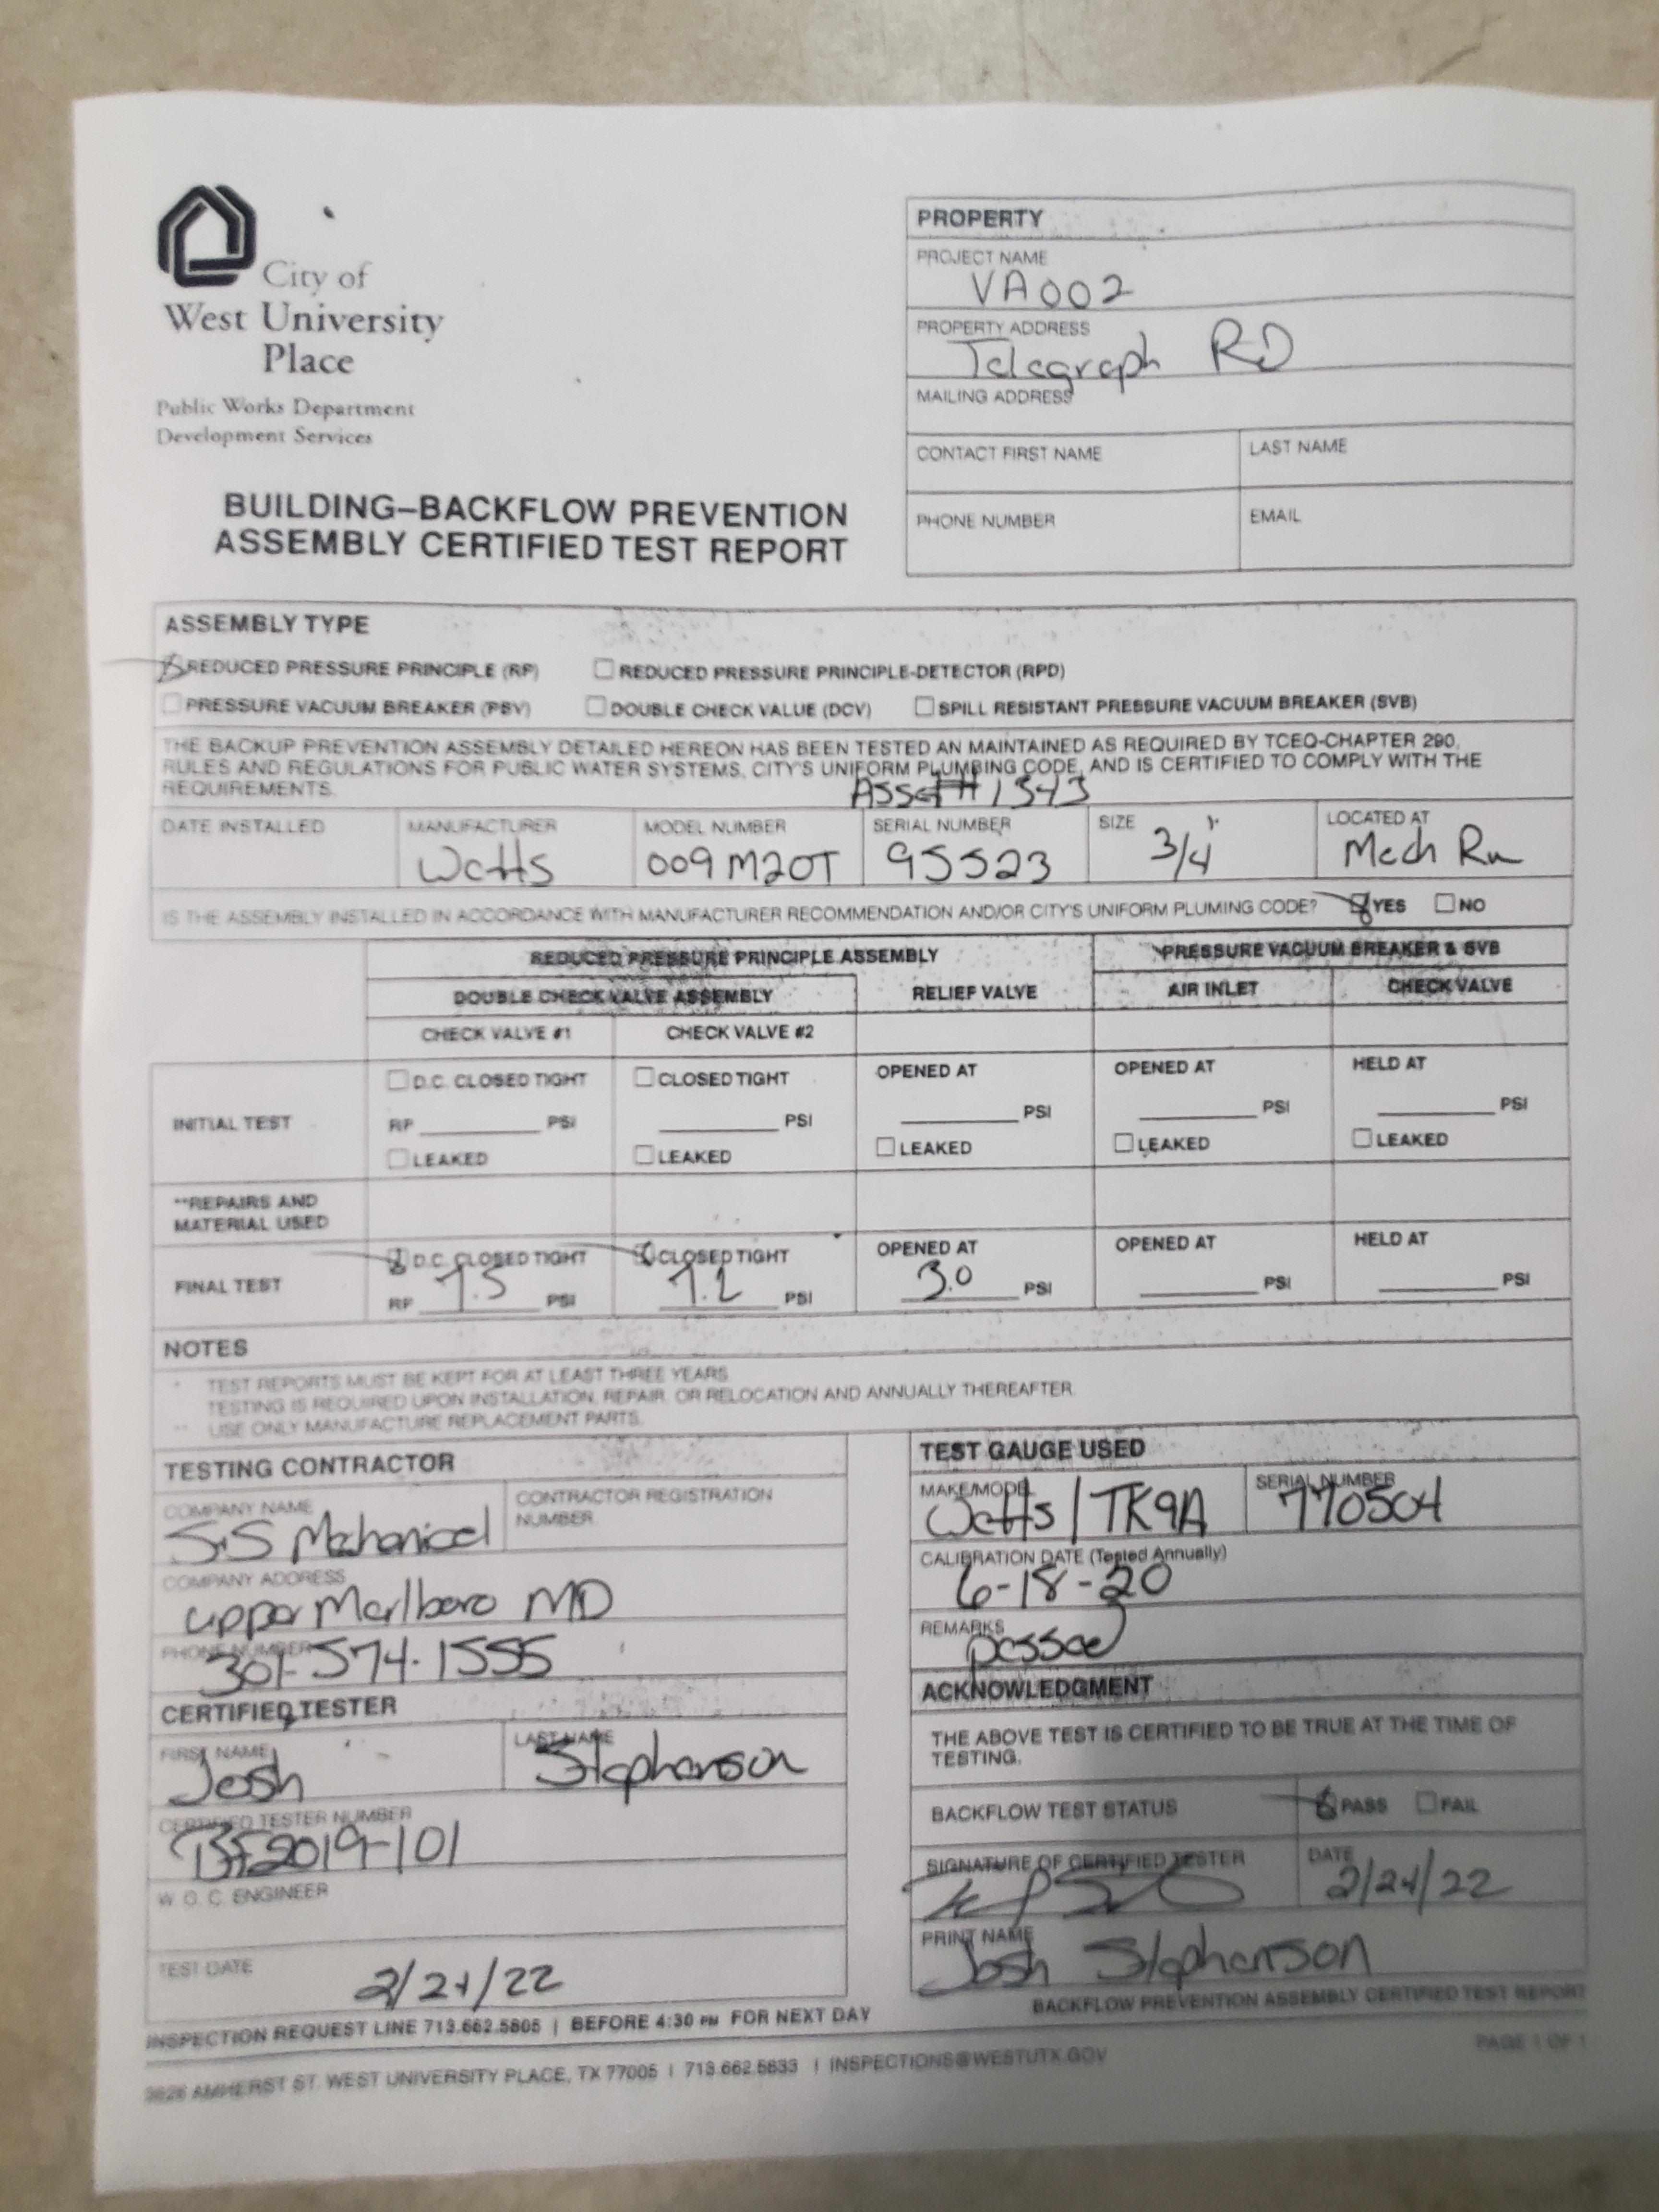 City of
West University
Place
Public Works Department
Development Services
BUILDING–BACKFLOW PREVENTION
ASSEMBLY CERTIFIED TEST REPORT
PROPERTY
PROJECT NAME
VA002
PROPERTY ADDRESS
Telegraph RD
MAILING ADDRESS
CONTACT FIRST NAME
LAST NAME
PHONE NUMBER
EMAIL
ASSEMBLY TYPE
REDUCED PRESSURE PRINCIPLE (RP)
REDUCED PRESSURE PRINCIPLE-DETECTOR (RPD)
PRESSURE VACUUM BREAKER (PSV)
DOUBLE CHECK VALUE (DCV)
SPILL RESISTANT PRESSURE VACUUM BREAKER (SVB)
THE BACKUP PREVENTION ASSEMBLY DETAILED HEREON HAS BEEN TESTED AN MAINTAINED AS REQUIRED BY TCEQ-CHAPTER 290,
RULES AND REGULATIONS FOR PUBLIC WATER SYSTEMS, CITY'S UNIFORM PLUMBING CODE, AND IS CERTIFIED TO COMPLY WITH THE
REQUIREMENTS.
Asset# 1343
DATE INSTALLED
MANUFACTURER
Watts
MODEL NUMBER
009M2QT
SERIAL NUMBER
95523
SIZE
3/4"
LOCATED AT
Mech Rm
IS THE ASSEMBLY INSTALLED IN ACCORDANCE WITH MANUFACTURER RECOMMENDATION AND/OR CITY'S UNIFORM PLUMING CODE? YES NO
REDUCED PRESSURE PRINCIPLE ASSEMBLY
PRESSURE VACUUM BREAKER & SVB
DOUBLE CHECK VALVE ASSEMBLY
RELIEF VALVE
AIR INLET
CHECK VALVE
CHECK VALVE #1
CHECK VALVE #2
INITIAL TEST
D.C. CLOSED TIGHT
RP PSI
LEAKED
CLOSED TIGHT
PSI
LEAKED
OPENED AT
PSI
LEAKED
OPENED AT
PSI
LEAKED
HELD AT
PSI
LEAKED
**REPAIRS AND
MATERIAL USED
FINAL TEST
D.C. CLOSED TIGHT
RP 7.5 PSI
CLOSED TIGHT
7.2 PSI
OPENED AT
3.0 PSI
OPENED AT
PSI
HELD AT
PSI
NOTES
* TEST REPORTS MUST BE KEPT FOR AT LEAST THREE YEARS
TESTING IS REQUIRED UPON INSTALLATION, REPAIR, OR RELOCATION AND ANNUALLY THEREAFTER.
** USE ONLY MANUFACTURE REPLACEMENT PARTS.
TESTING CONTRACTOR
COMPANY NAME
S.S Mechanical
CONTRACTOR REGISTRATION
NUMBER
COMPANY ADDRESS
upper Marlboro MD
PHONE NUMBER
301-574-1555
CERTIFIED TESTER
FIRST NAME
Josh
LAST NAME
Stephenson
CERTIFIED TESTER NUMBER
BF2019-101
W.O.C. ENGINEER
TEST DATE
2/24/22
TEST GAUGE USED
MAKE/MODEL
Watts / TK9A
SERIAL NUMBER
770504
CALIBRATION DATE (Tested Annually)
6-18-20
REMARKS
passed
ACKNOWLEDGMENT
THE ABOVE TEST IS CERTIFIED TO BE TRUE AT THE TIME OF
TESTING.
BACKFLOW TEST STATUS PASS FAIL
SIGNATURE OF CERTIFIED TESTER
DATE
2/24/22
PRINT NAME
Josh Stephenson
BACKFLOW PREVENTION ASSEMBLY CERTIFIED TEST REPORT
INSPECTION REQUEST LINE 713.662.5805 | BEFORE 4:30 PM FOR NEXT DAY
PAGE 1 OF 1
3826 AMHERST ST. WEST UNIVERSITY PLACE, TX 77005 | 713.662.5833 | INSPECTIONS@WESTUTX.GOV